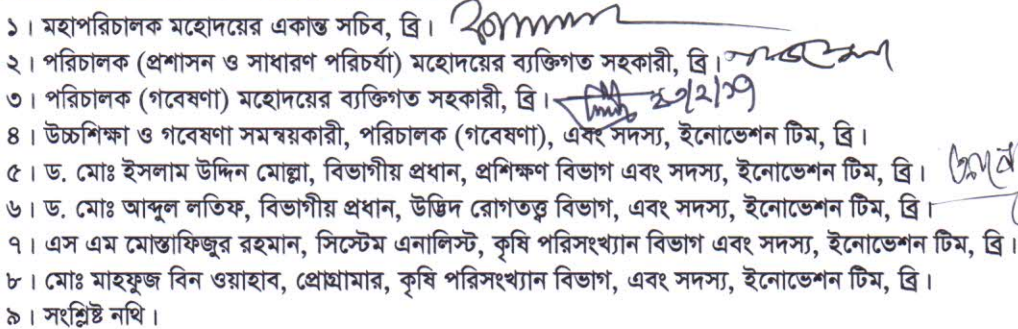 ১। মহাপরিচালক মহোদয়ের একান্ত সচিব, ব্রি।
২। পরিচালক (প্রশাসন ও সাধারণ পরিচর্যা) মহোদয়ের ব্যক্তিগত সহকারী, ব্রি।
৩। পরিচালক (গবেষণা) মহোদয়ের ব্যক্তিগত সহকারী, ব্রি।
৪। উচ্চশিক্ষা ও গবেষণা সমন্বয়কারী, পরিচালক (গবেষণা), এবং সদস্য, ইনোভেশন টিম, ব্রি।
৫। ড. মোঃ ইসলাম উদ্দিন মোল্লা, বিভাগীয় প্রধান, প্রশিক্ষণ বিভাগ এবং সদস্য, ইনোভেশন টিম, ব্রি।
৬। ড. মোঃ আব্দুল লতিফ, বিভাগীয় প্রধান, উদ্ভিদ রোগতত্ত্ব বিভাগ, এবং সদস্য, ইনোভেশন টিম, ব্রি।
৭। এস এম মোস্তাফিজুর রহমান, সিস্টেম এনালিস্ট, কৃষি পরিসংখ্যান বিভাগ এবং সদস্য, ইনোভেশন টিম, ব্রি।
৮। মোঃ মাহফুজ বিন ওয়াহাব, প্রোগ্রামার, কৃষি পরিসংখ্যান বিভাগ, এবং সদস্য, ইনোভেশন টিম, ব্রি।
৯। সংশ্লিষ্ট নথি।